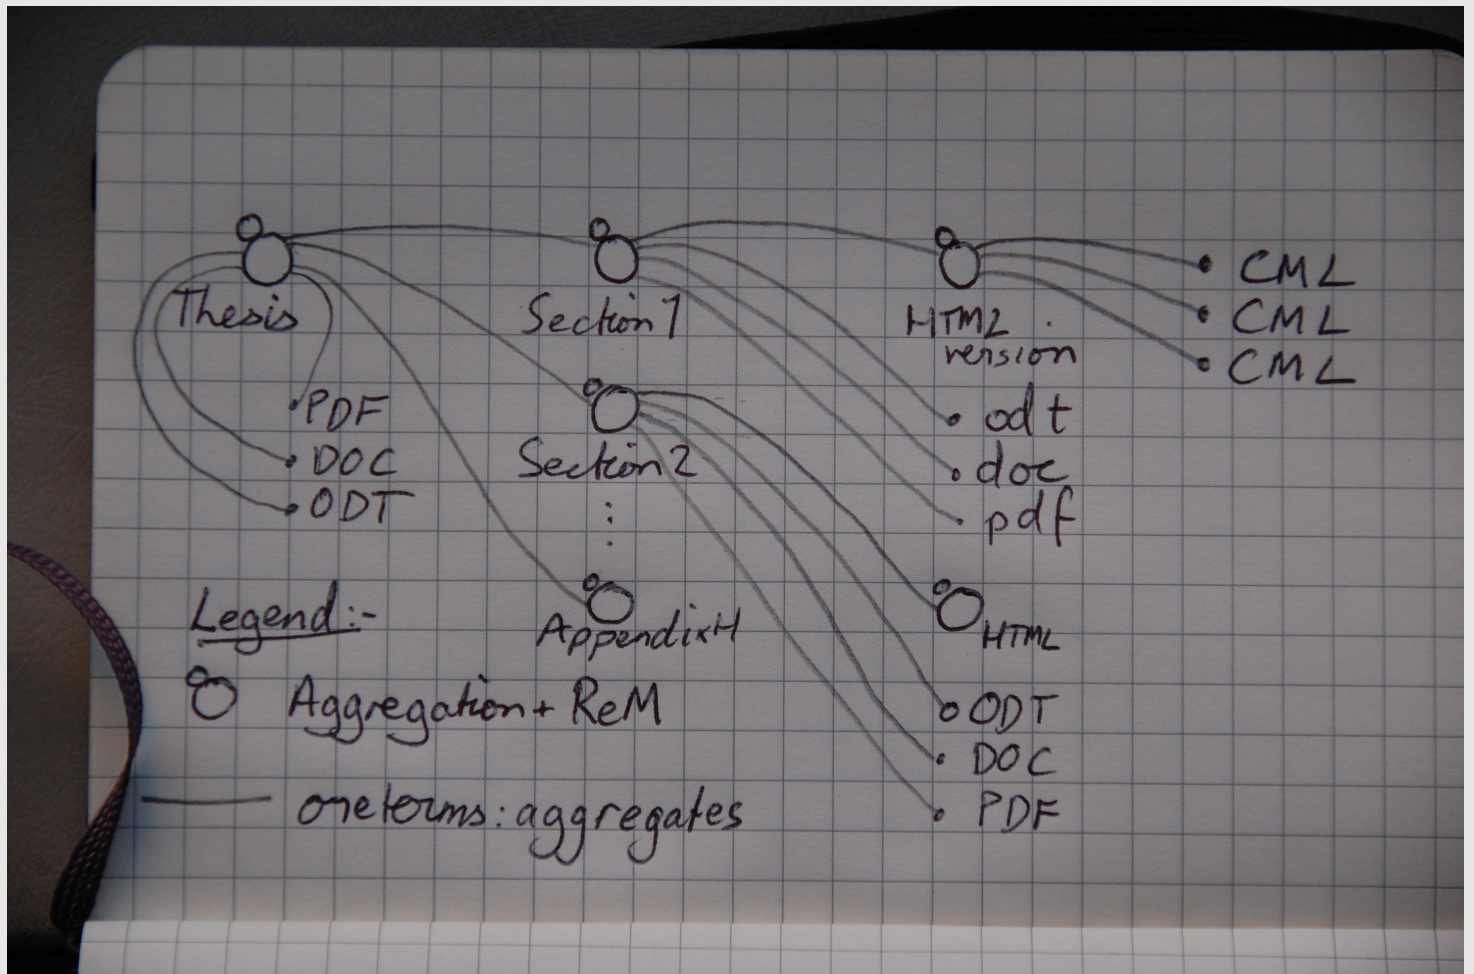 Thesis
PDF
DOC
ODT
Section 1
Section 2
Appendix H
HTML
version
CML
CML
CML
odt
doc
pdf
HTML
ODT
DOC
PDF
Legend:-
Aggregation + ReM
oreterms: aggregates